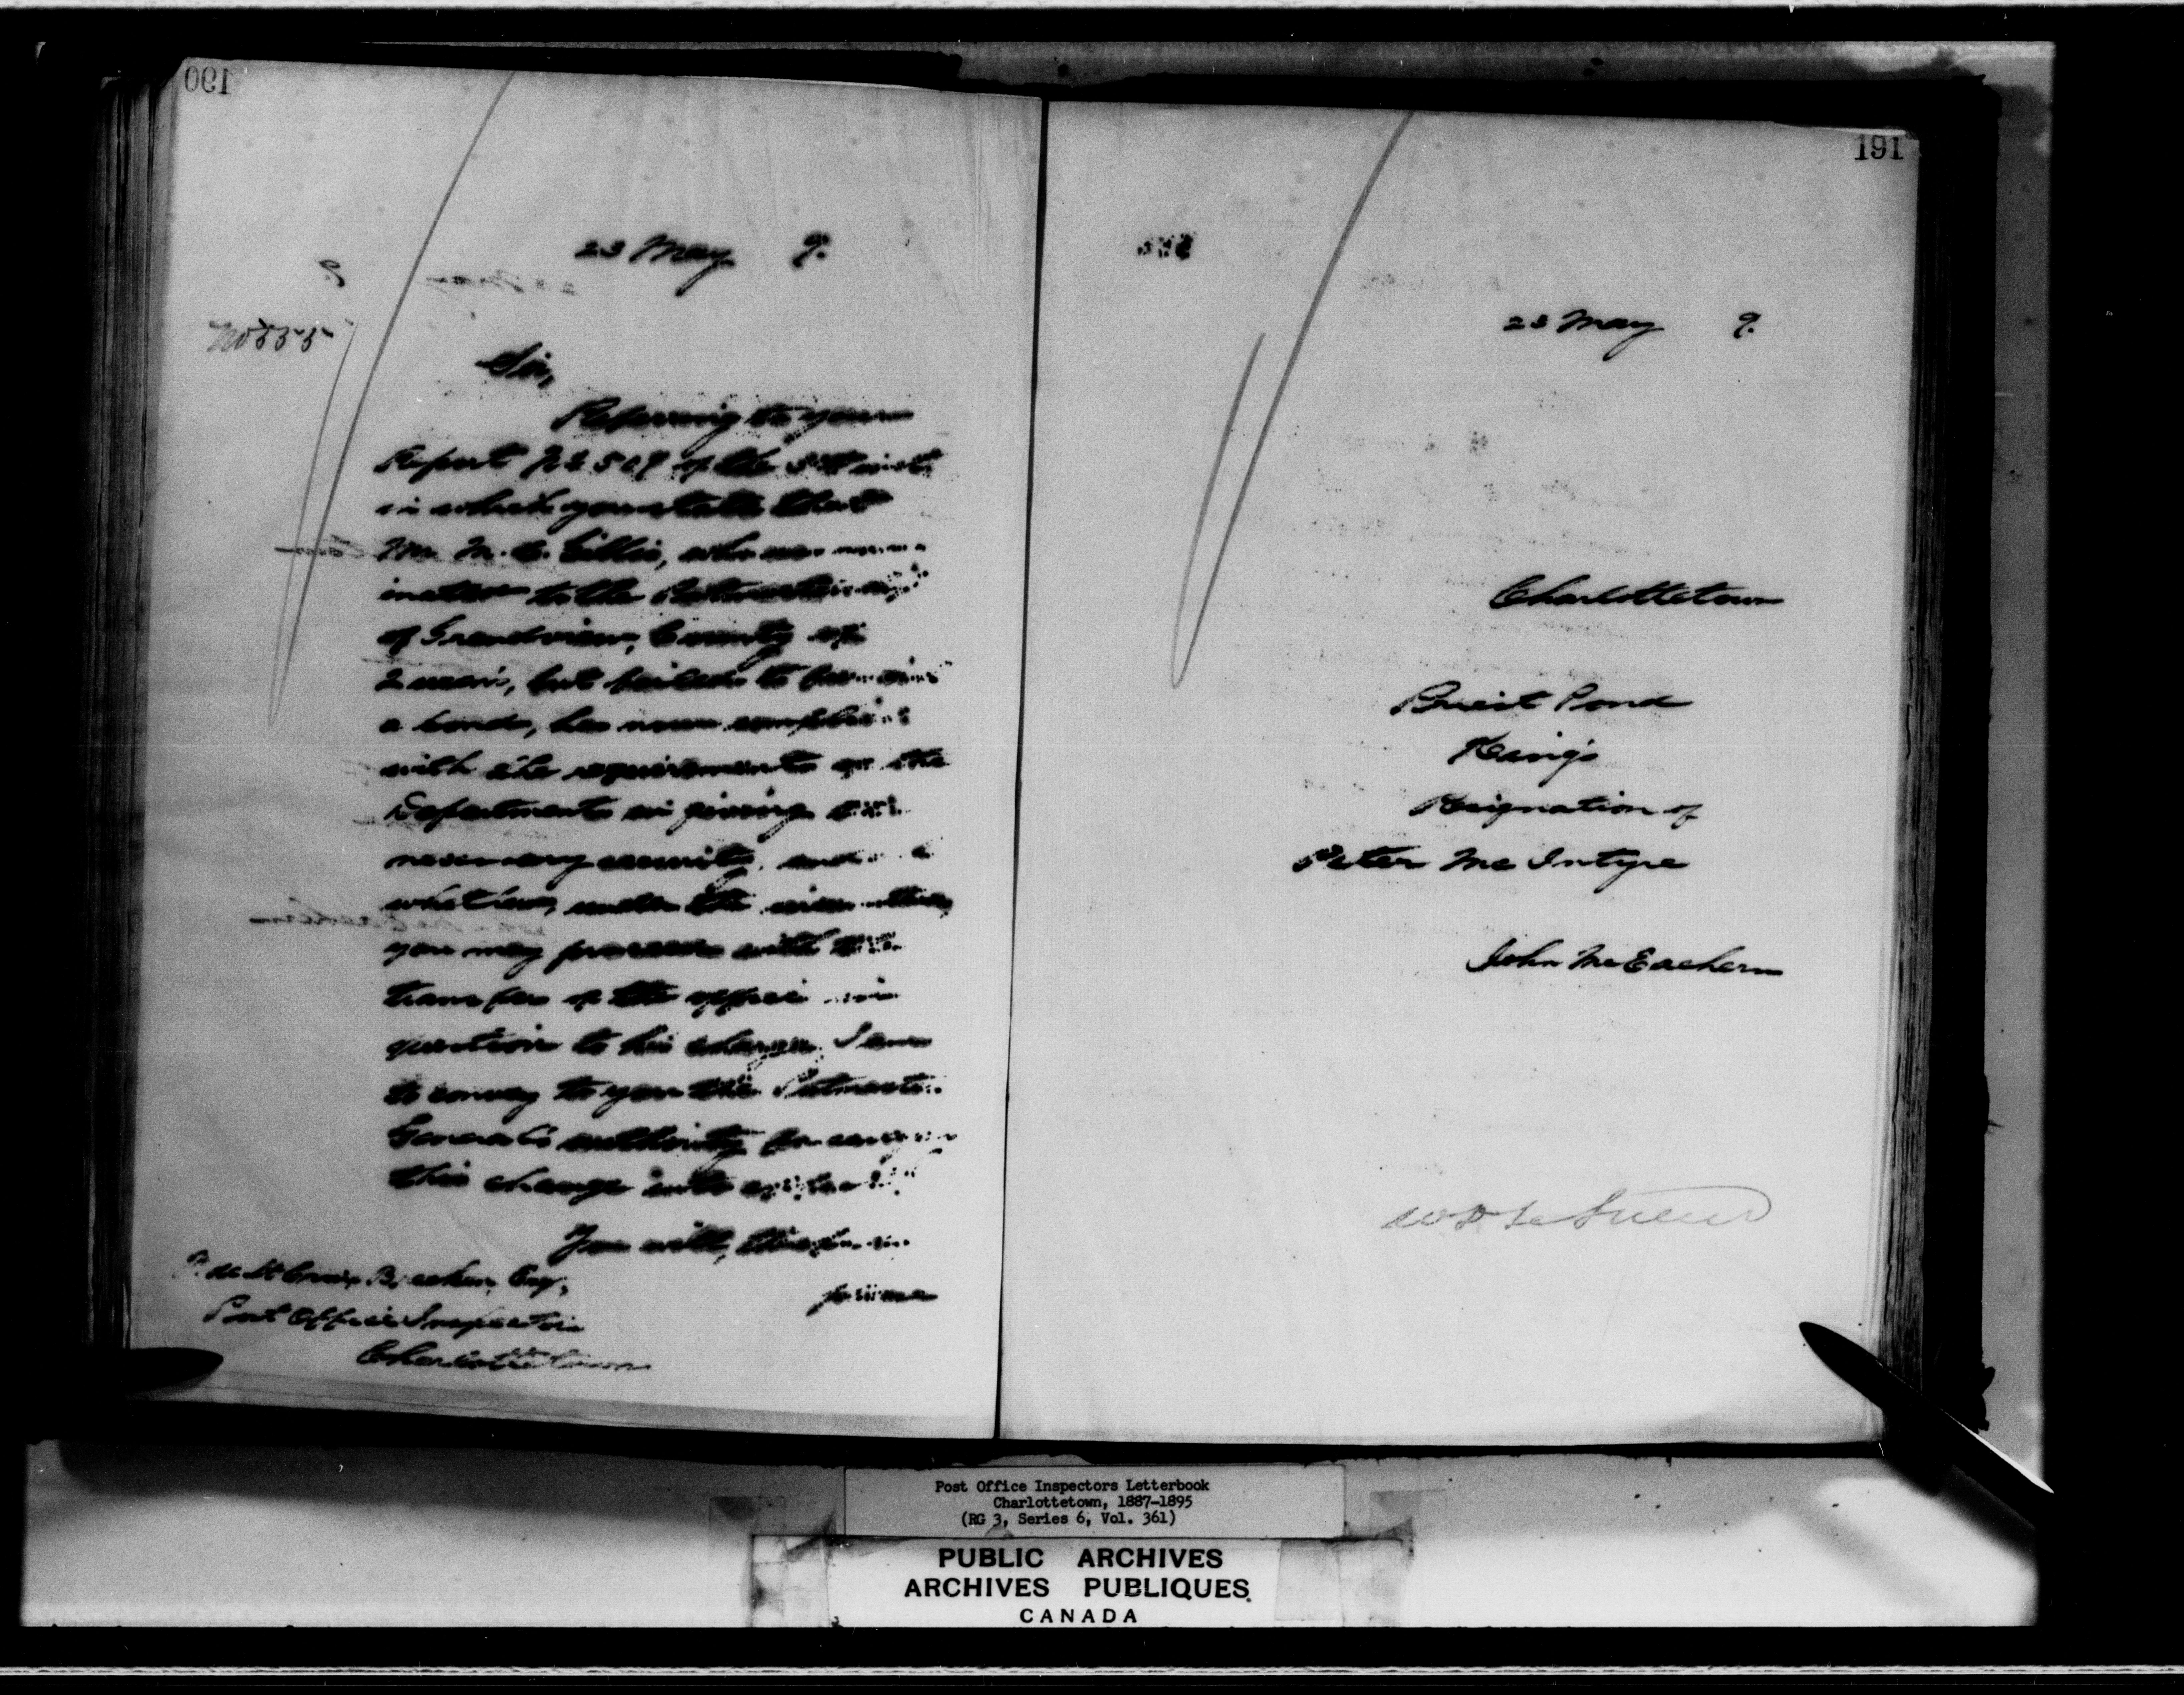 190
23 May 9.
No 555
Sir,
Referring to your
Report No 509 of the inst
in which you state that
Mr. M. C. Gillis, who was nom
inated to the Postmastership
of Grandview, County of
Queen's, but failed to furnish
a bond, has now complied
with the requirements of the
Department in giving the
necessary security, and
you may proceed with the
transfer of the office in
question to his charge, I am
to convey to you the Postmaster
General's authority for carrying
this change into effect.
You will, therefore
please
F. de St Croix Brecken, Esq,
Post Office Inspector
Charlottetown
191
23 May 9.
Charlottetown
Priest Pond
King's
Resignation of
Peter McIntyre
John McEachern
W D LeSueur
Post Office Inspectors Letterbook
Charlottetown, 1887-1895
(RG 3, Series 6, Vol. 361)
PUBLIC ARCHIVES
ARCHIVES PUBLIQUES
CANADA